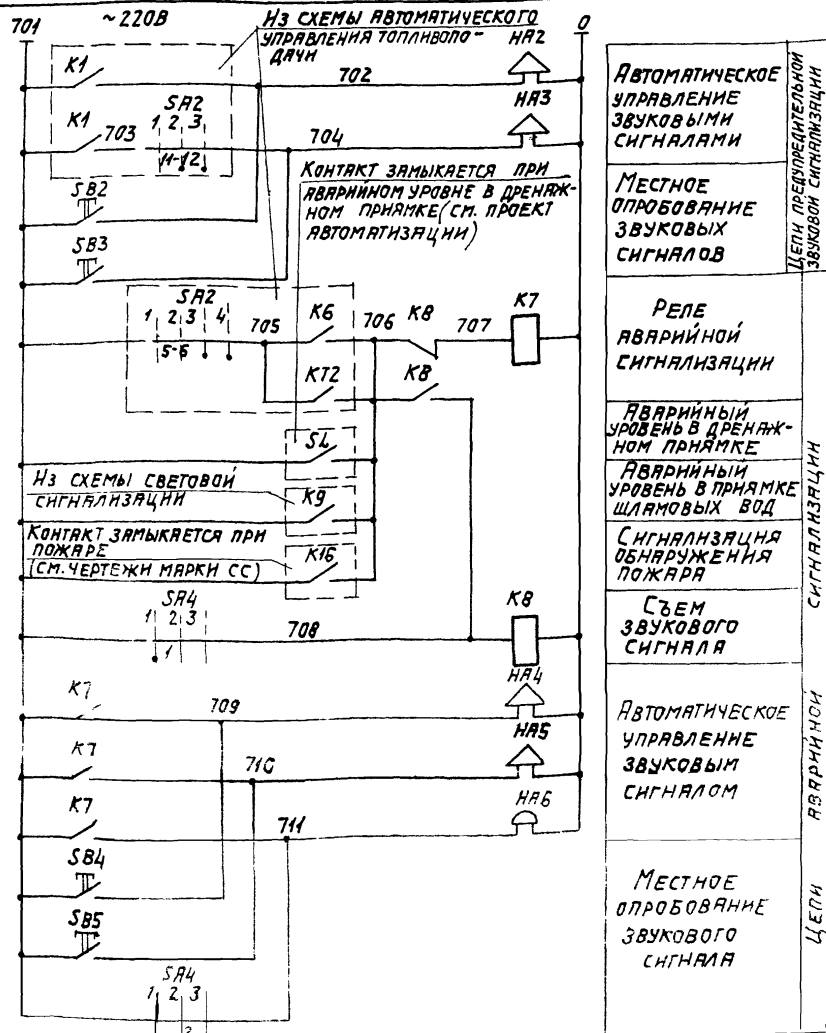 701
~220В
Из схемы автоматического
управления топливопо-
дачи
0
К1
702
НА2
К1
703
SA2
1 2 3
11-12
704
НА3
SB2
SB3
Контакт замыкается при
аварийном уровне в дренаж-
ном приямке (см. проект
автоматизации)
SA2
1 2 3 4
5-6
705
К6
706
К8
707
К7
КТ2
К8
SL
Из схемы световой
сигнализации
К9
Контакт замыкается при
пожаре
(см. чертежи марки СС)
К16
SA4
1 2 3
1
708
К8
К7
709
НА4
К7
710
НА5
К7
711
НА6
SB4
SB5
SA4
1 2 3
2
Автоматическое
управление
звуковыми
сигналами
Местное
опробование
звуковых
сигналов
Цепи предупредительной
звуковой сигнализации
Реле
аварийной
сигнализации
Аварийный
уровень в дренаж-
ном приямке
Аварийный
уровень в приямке
шламовых вод
Сигнализация
обнаружения
пожара
Съем
звукового
сигнала
Автоматическое
управление
звуковым
сигналом
Местное
опробование
звукового
сигнала
Цепи аварийной сигнализации